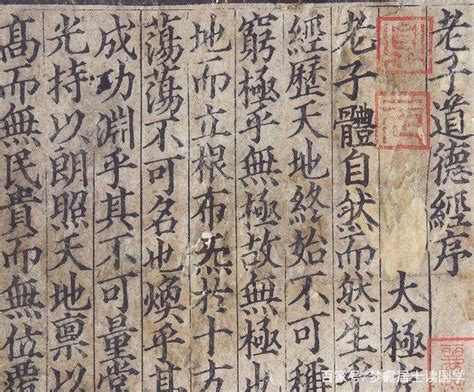 老子道德經序
太極
老子體自然而然生
經歷天地終始不可稱
窮極乎無極故無極
地而立根布炁於十方
蕩蕩不可名也煥乎其
成功淵乎其不可量堂
光持以朗照天地稟以
高而無民貴而無位覆
百家号/梦露居士读国学